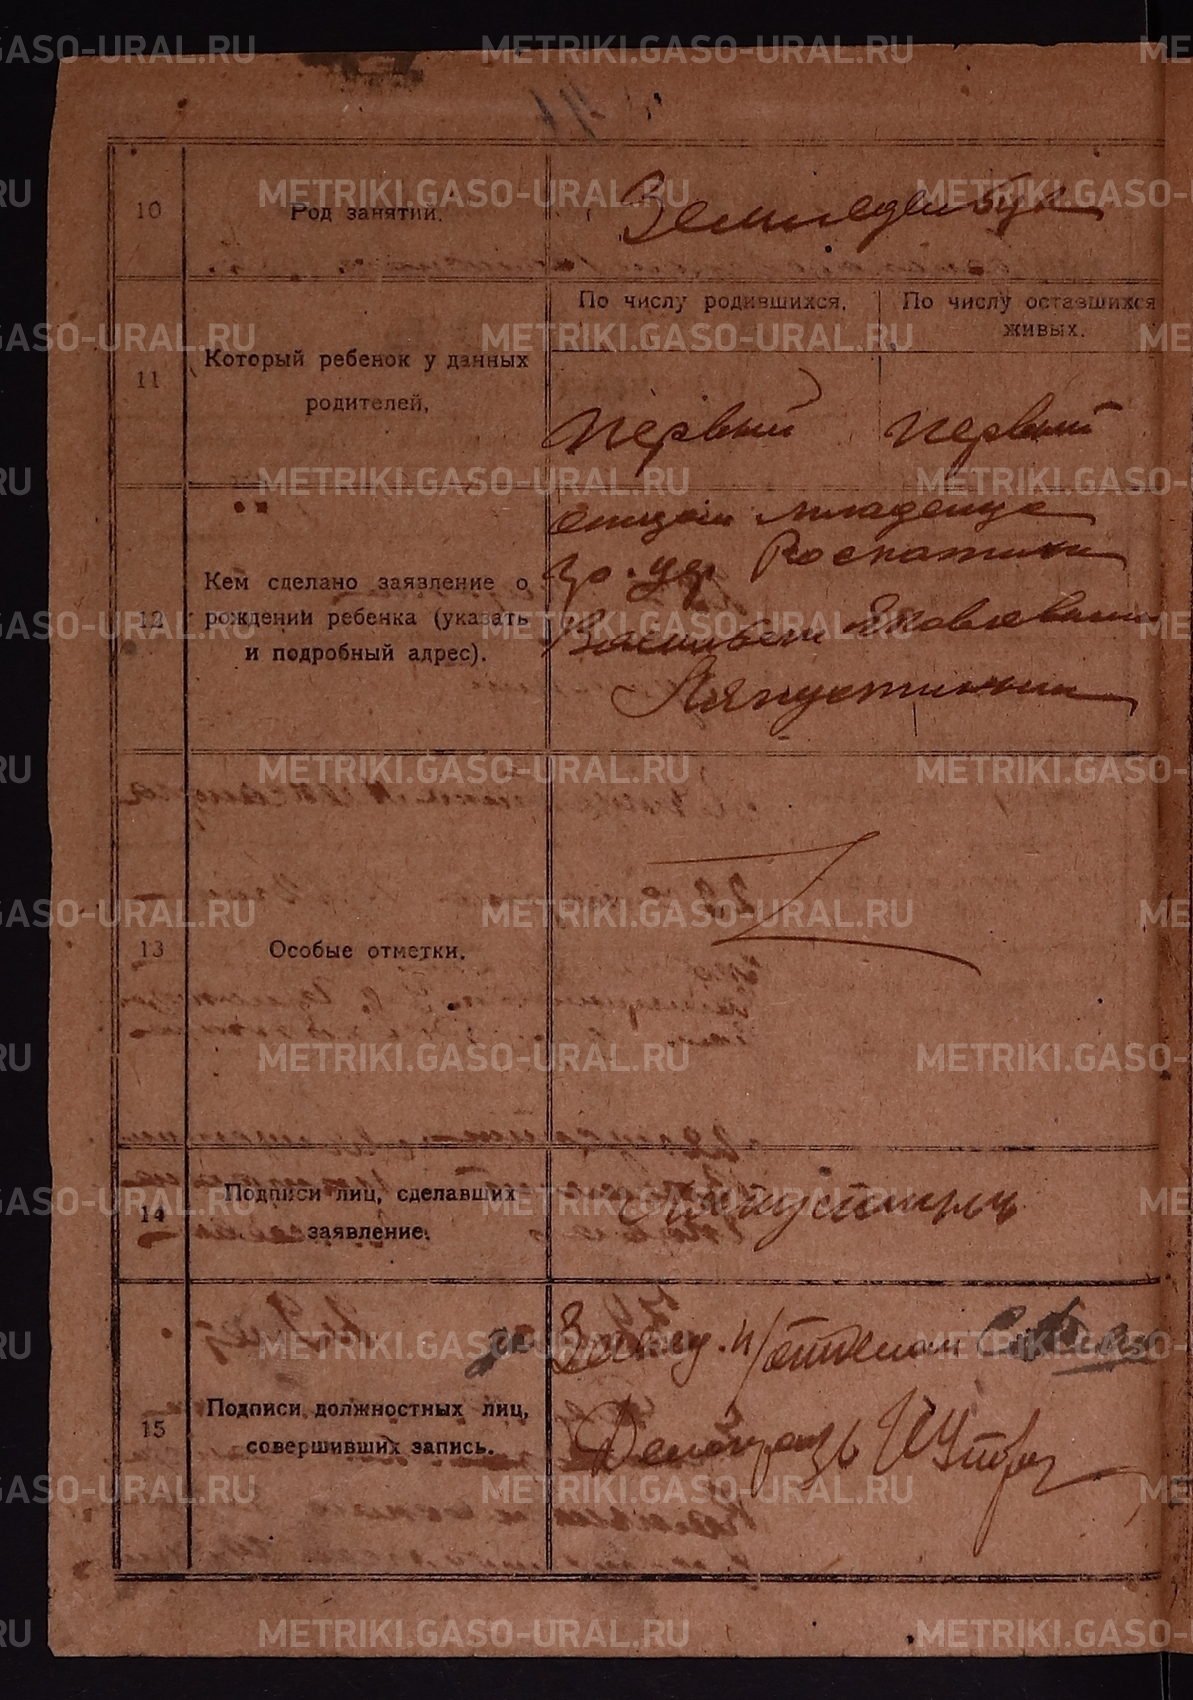 10 Род занятий. Земледелец
По числу родившихся. По числу оставшихся
живых.
11 Который ребенок у данных
родителей,
первый первый
отцом младенца
Кем сделано заявление о
12 рождении ребенка (указать
и подробный адрес).
гр. дер
Васильем Яковлевым
Ляпустиным
13 Особые отметки.
14 Подписи лиц, сделавших
заявление.
15 Подписи должностных лиц,
совершивших запись.
за Завед. п/отделом
Делопроизв
METRIKI.GASO-URAL.RU